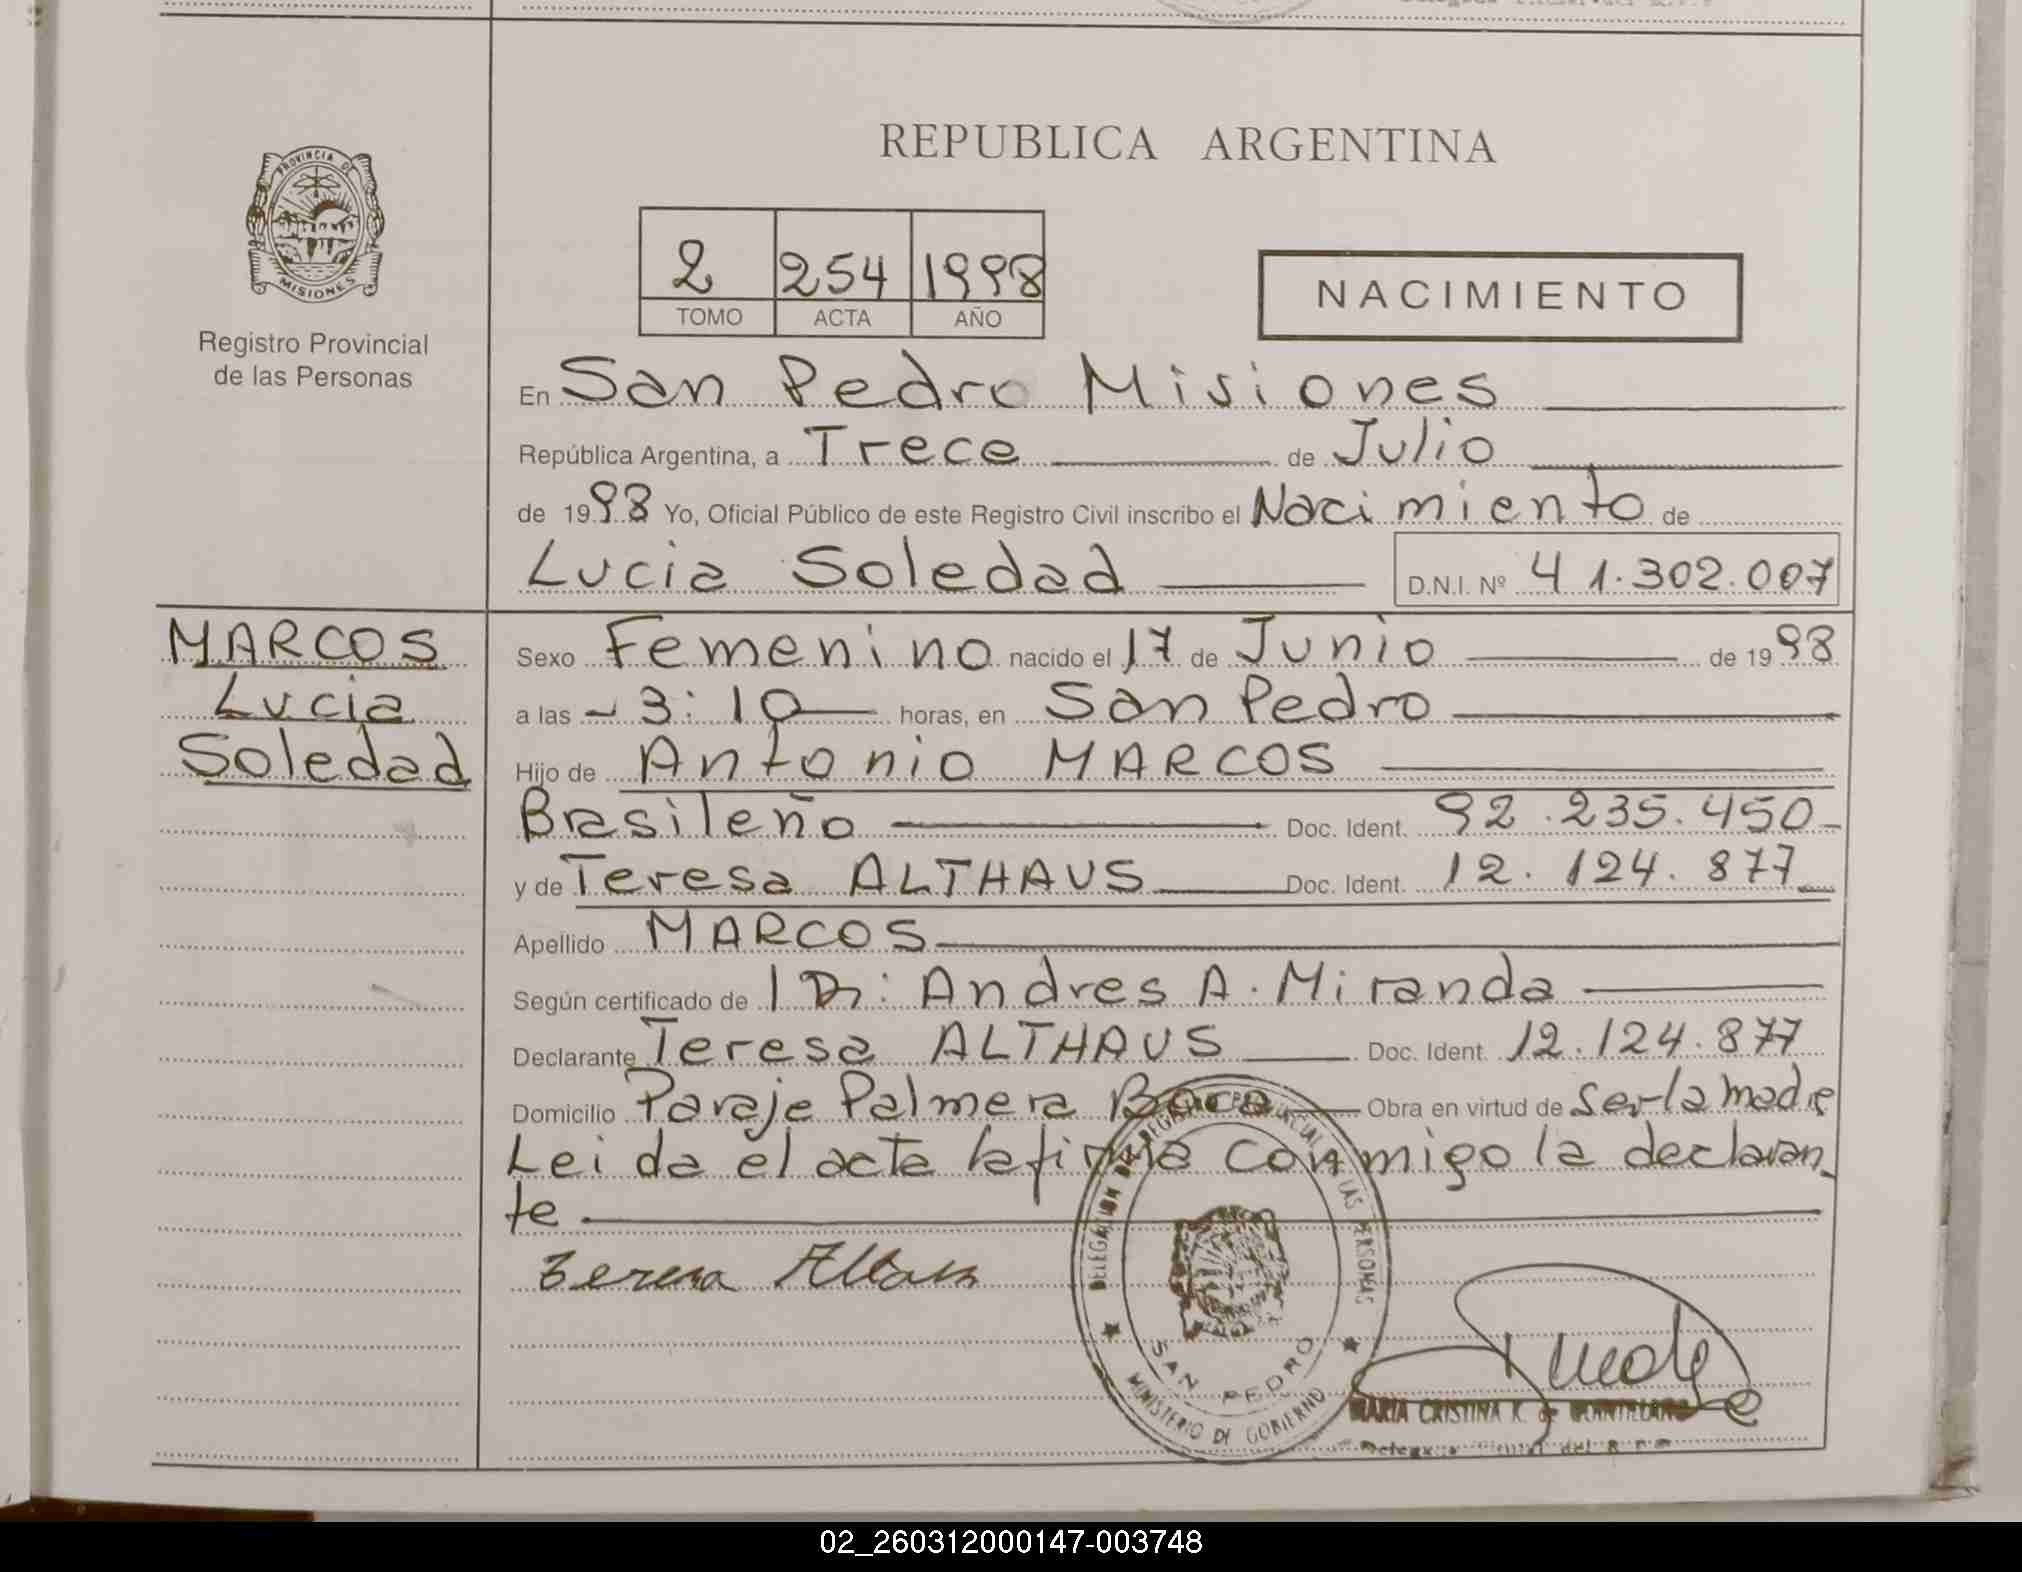 REPUBLICA ARGENTINA
PROVINCIA DE
MISIONES
Registro Provincial
de las Personas
2 254 1998
TOMO ACTA AÑO
NACIMIENTO
En San Pedro Misiones
República Argentina, a Trece de Julio
de 1998 Yo, Oficial Público de este Registro Civil inscribo el Nacimiento de
Lucia Soledad D.N.I. Nº 41.302.007
MARCOS
Lucia
Soledad
Sexo Femenino nacido el 17 de Junio de 1998
a las - 3:10 horas, en San Pedro
Hijo de Antonio MARCOS
Brasileño Doc. Ident. 92.235.450
y de Teresa ALTHAUS Doc. Ident. 12.124.877
Apellido MARCOS
Según certificado de Andres A. Miranda
Declarante Teresa ALTHAUS Doc. Ident. 12.124.877
Domicilio Paraje Palmera Boca Obra en virtud de Ser la madre
Leida el acta la firma conmigo la declaran
te
Teresa
DELEGACION DEL REGISTRO PROVINCIAL DE LAS PERSONAS
SAN PEDRO
MINISTERIO DE GOBIERNO
MARIA CRISTINA K. de
02_260312000147-003748